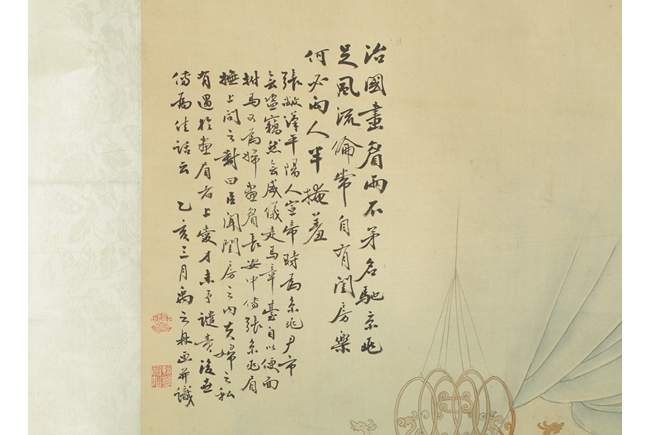 治國畫眉兩不矛名馳京兆
足風流倫常自有閨房樂
何必兩人半掩羞
張敞漢平陽人宣帝時為京兆尹市
無盜竊然無威儀走馬章臺自以便面
拊馬又為婦畫眉長安中傳張京兆眉
憮上問之對曰臣聞閨房之內夫婦之私
有過於畫眉者上愛才未予譴責後世
傳為佳話云 乙亥三月禹云林画并識